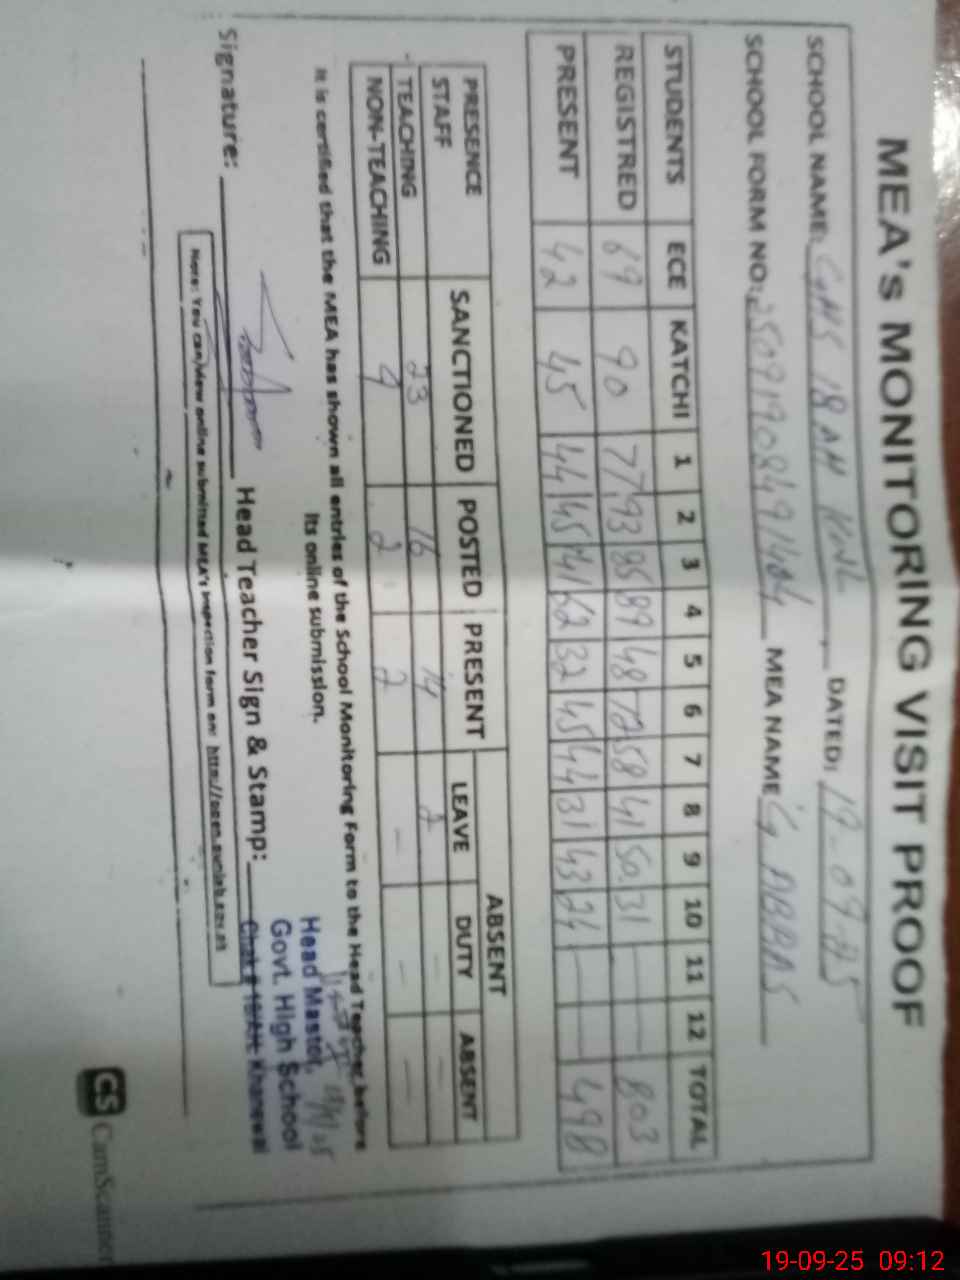 MEA's MONITORING VISIT PROOF
SCHOOL NAME: GHS 18 AH KWL DATED: 19-09-25
SCHOOL FORM NO: MEA NAME G ABBAS
STUDENTS ECE KATCHI 1 2 3 4 5 6 7 8 9 10 11 12 TOTAL
REGISTRED 69 90 77 93 85 89 48 72 58 41 50 31 — — 803
PRESENT 42 45 44 45 41 42 32 45 44 31 43 21 — — 498
PRESENCE STAFF SANCTIONED POSTED PRESENT ABSENT
LEAVE DUTY ABSENT
TEACHING 23 16 14 2 — —
NON-TEACHING 4 2 2 — — —
It is certified that the MEA has shown all entries of the School Monitoring Form to the Head Teacher before
its online submission.
Head Master,
Govt. High School
Chak # 18/AH Khanewal
Signature: Head Teacher Sign & Stamp:
Note: You can view online submitted MEA's inspection form on: http://open.punjab.gov.pk
CS CamScanner
19-09-25 09:12